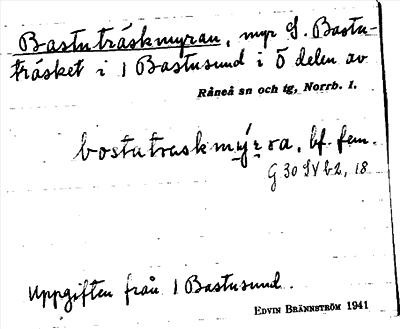 Bastuträskmyran, myr S. Bastu-
träsket i 1 Bastusund i Ö delen av
Råneå sn och tg, Norrb. l.
bostatraskmýrra, bf. fem.
G 30 IV b2, 18
Uppgiften från 1 Bastusund.
EDVIN BRÄNNSTRÖM 1941